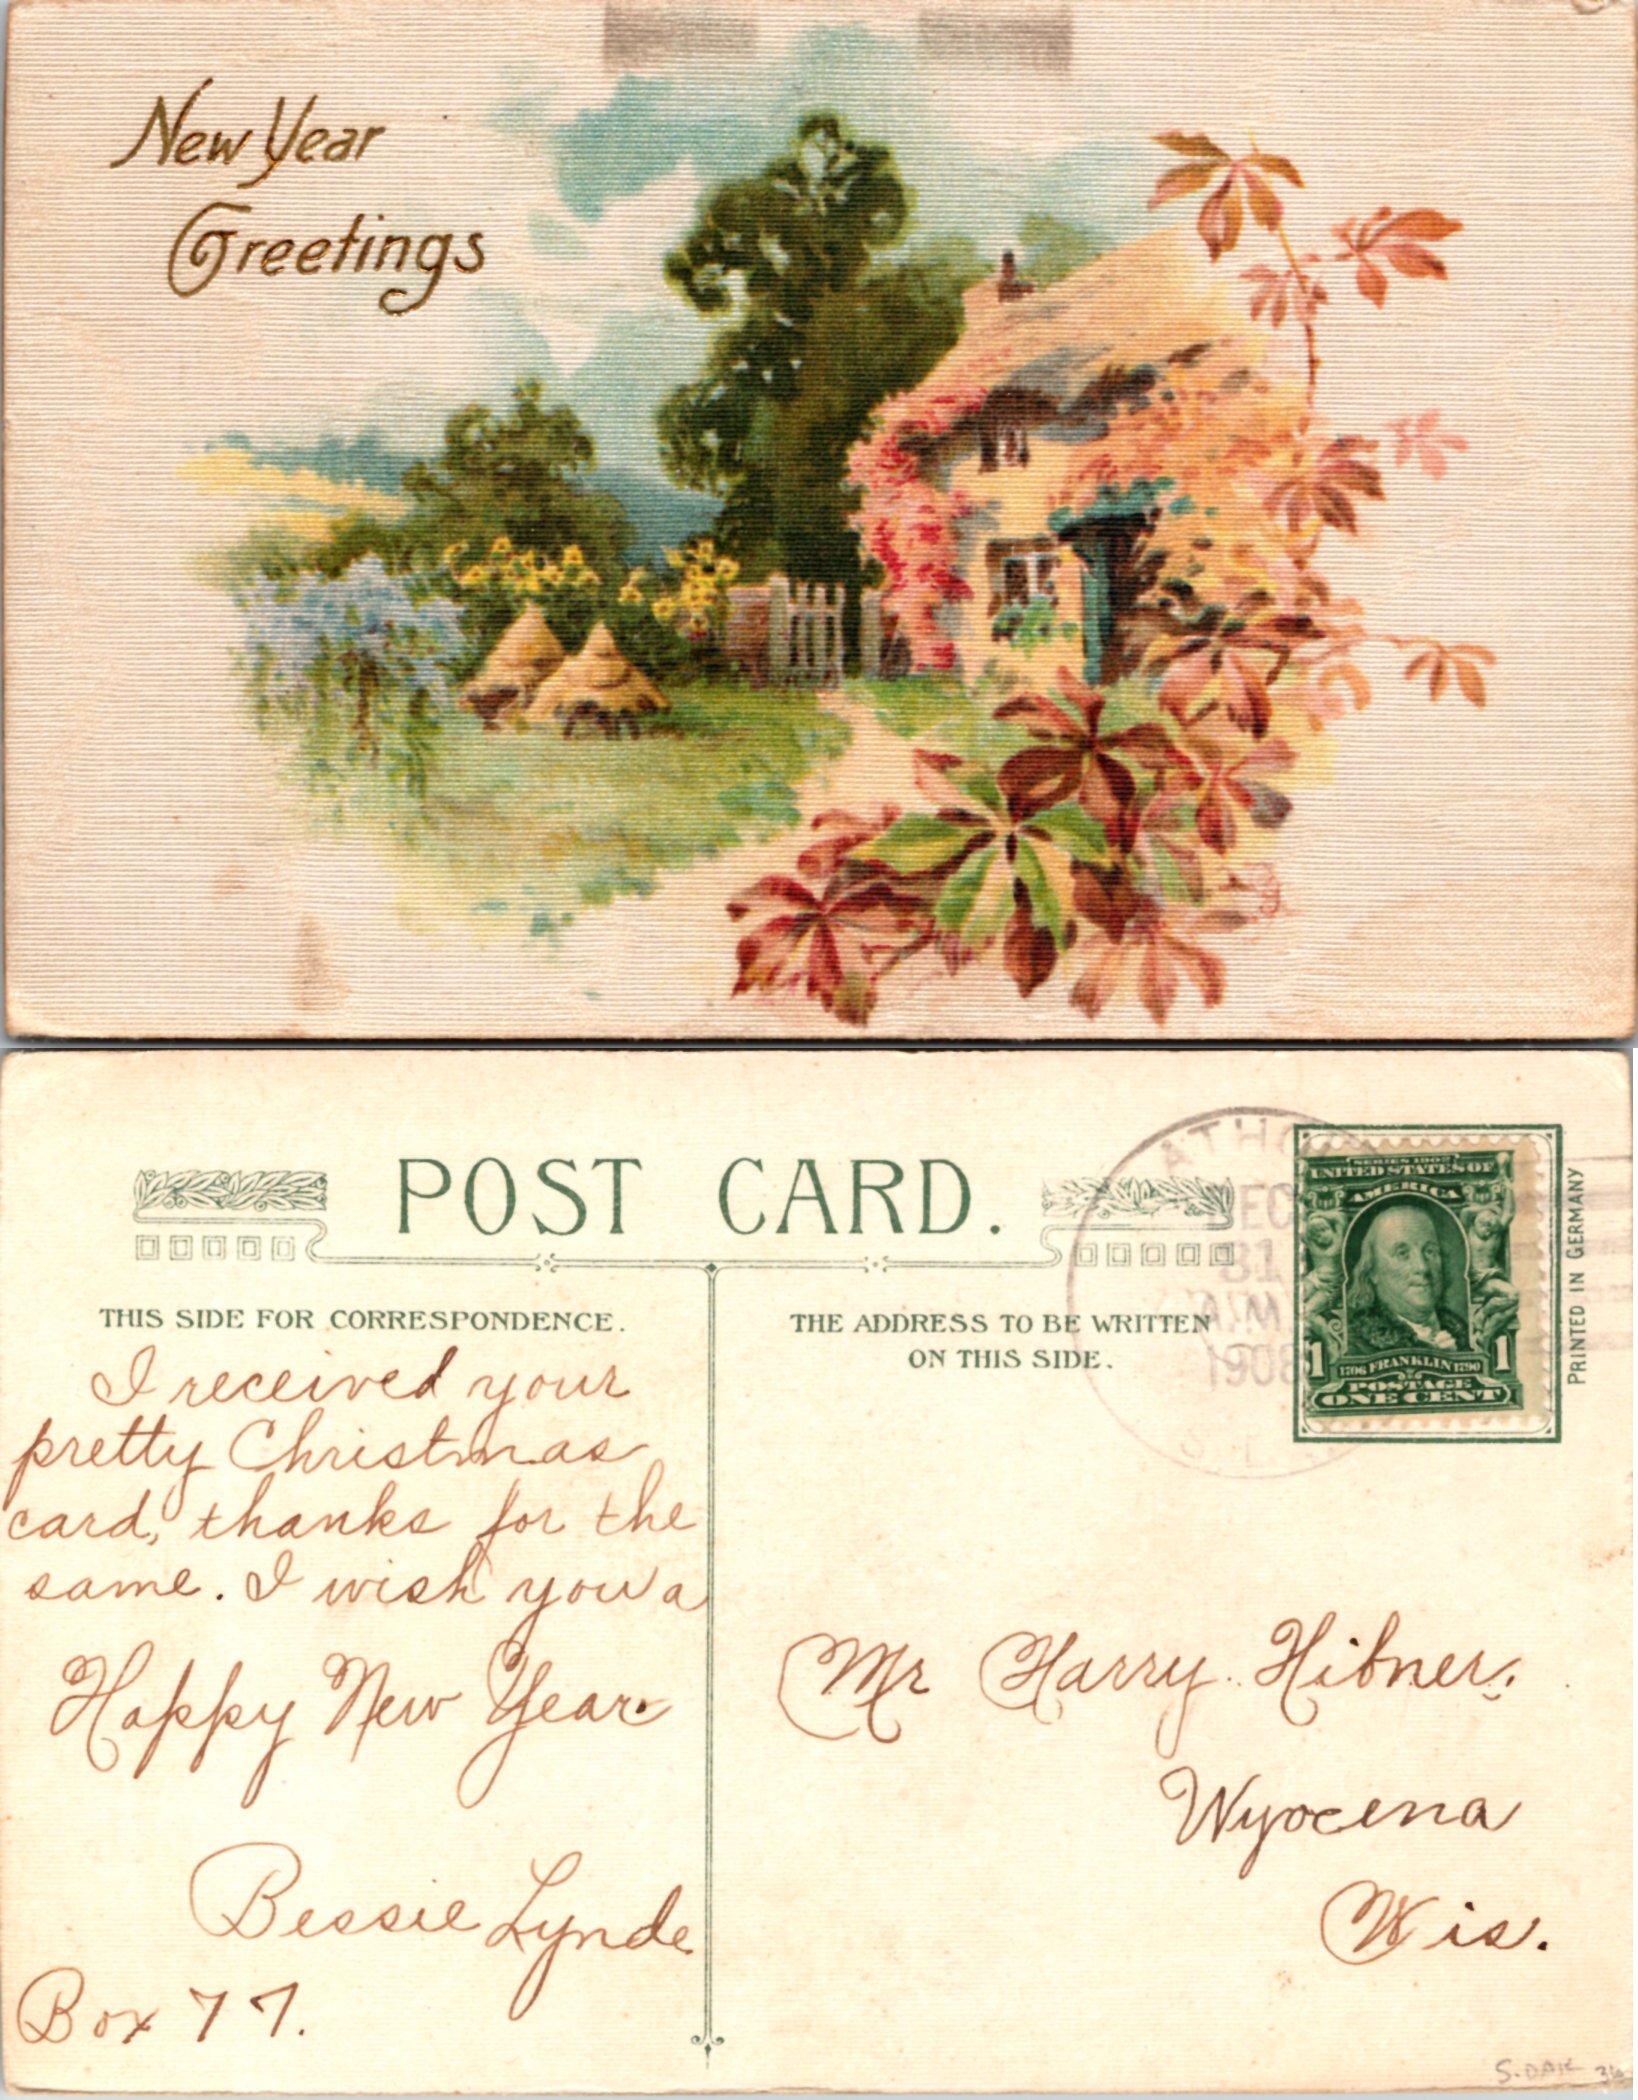 New Year
Greetings
POST CARD.
THIS SIDE FOR CORRESPONDENCE.
THE ADDRESS TO BE WRITTEN
ON THIS SIDE.
DEC
31
A.M
1908
SERIES 1902
UNITED STATES OF
AMERICA
1706 FRANKLIN 1790
1 1
POSTAGE
ONE CENT
PRINTED IN GERMANY
I received your
pretty Christmas
card, thanks for the
same. I wish you a
Happy New Year.
Bessie Lynde
Box 77.
Mr Harry Hibner.
Wyocena
Wis.
S. DAK